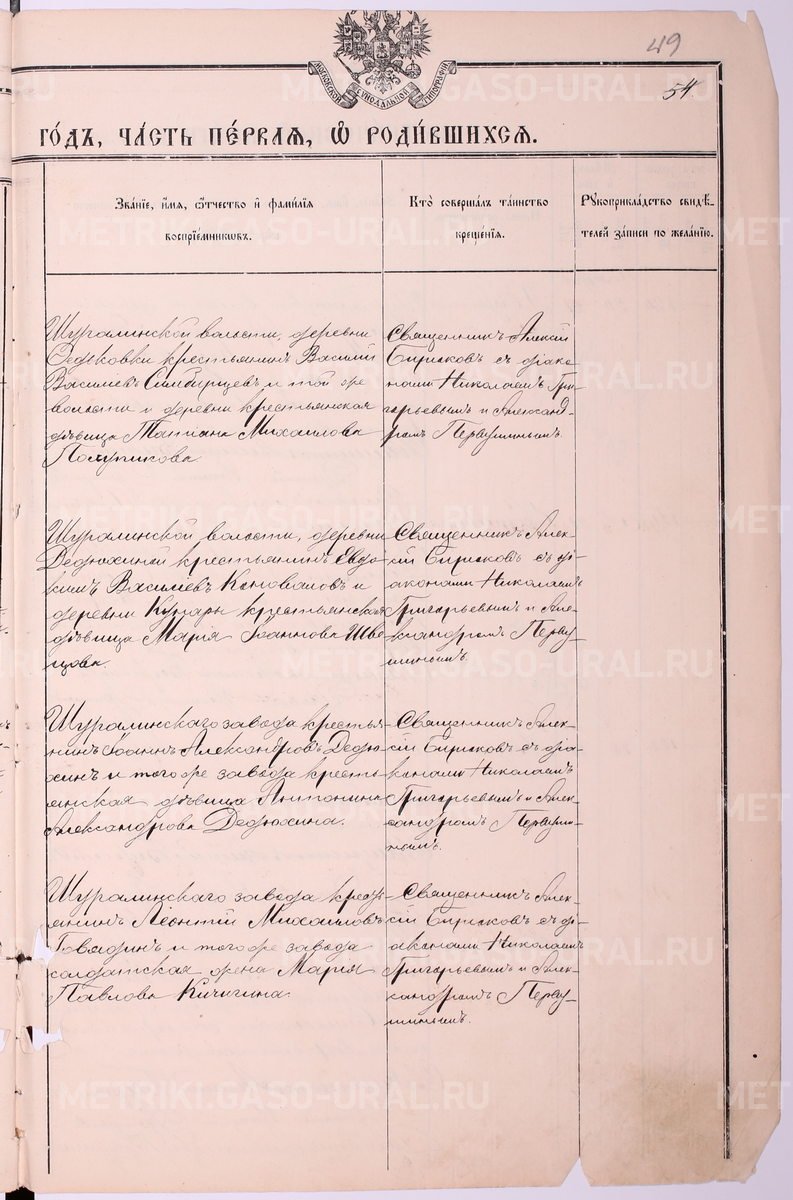 49
54
МОСКОВСКОЙ СѴНОДАЛЬНОЙ ТИПОГРАФІИ
ГО́ДЪ, ЧА́СТЬ ПЕ́РВАЯ, Ѽ РОДИ́ВШИХСЯ.
Зва́ніе, и҆́мя, ѻ҆́тчество и҆ фами́лія
воспріе́мникѡвъ.
Кто̀ соверша́лъ та́инство
креще́нія.
Рꙋкоприкла́дство свидѣ́-
телей за́писи по жела́нію.
Шуралинской волости, деревни
крестьянинъ Василій
Василіевъ Симбирцевъ и той же
волости и деревни крестьянская
дѣвица Татіана Михаилова
Священникъ Алексій
Бирюковъ съ діако
нами Николаемъ Гри
горьевымъ и Александ-
ромъ Первушинымъ.
Шуралинской волости, деревни
Дедюхиной крестьянинъ Евдо-
кимъ Василіевъ Коновалов и
деревни Кунары крестьянская
дѣвица Марія Іоаннова Шве
цова.
Священникъ Алек-
сій Бирюковъ съ ді-
аконами Николаемъ
Григорьевымъ и Але
ксандромъ Перву-
шинымъ.
Шуралинскаго завода крестья-
нинъ Іоаннъ Александровъ Дедю
хинъ и того же завода кресть
янская дѣвица Антонина
Александрова Дедюхина.
Священникъ Алек-
сій Бирюковъ съ діа-
конами Николаемъ
Григорьевымъ и Алек-
сандромъ Первуши-
нымъ.
Шуралинскаго завода кресть
янинъ Леонтій Михаиловъ
Говядинъ и того же завода
солдатская жена Марія
Павлова Кичигина.
Священникъ Алек-
сій Бирюковъ съ ді-
аконами Николаемъ
Григорьевымъ и Алек-
сандромъ Перву-
шинымъ.
METRIKI.GASO-URAL.RU